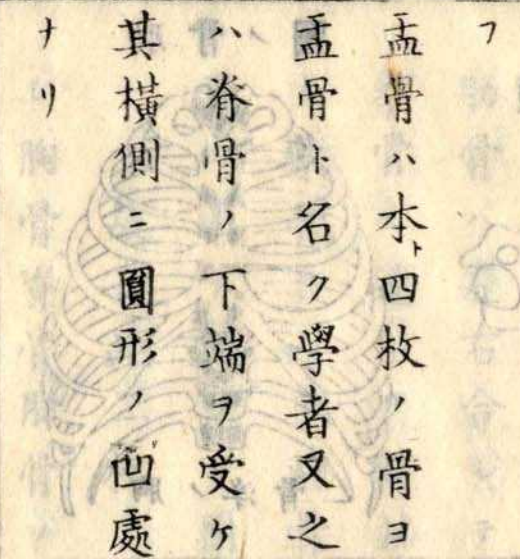 フ
盂骨ハ本ト四枚ノ骨ヨ
盂骨ト名ク學者又之
ハ脊骨ノ下端ヲ受ケ
其横側ニ圓形ノ凹處
ナリ